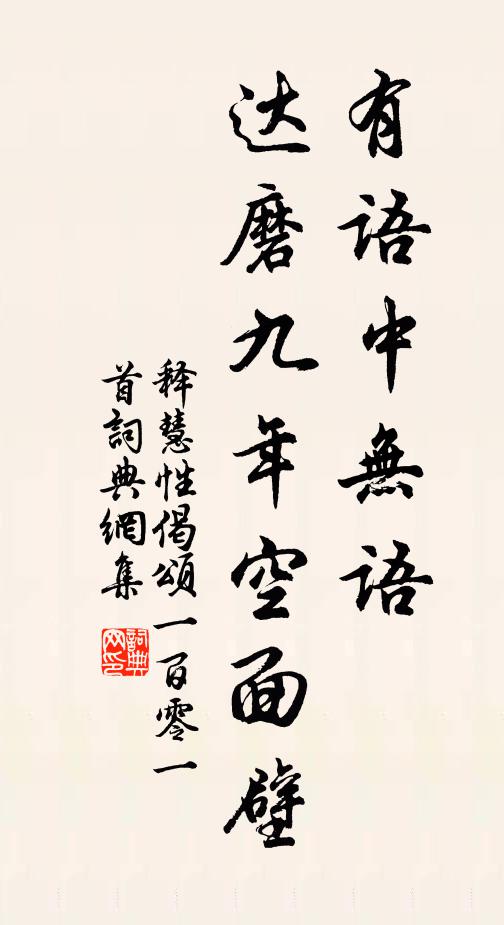 有語中無語
达磨九年空面壁
释慧性偈頌一百零一
首詞典網集
詞典
网印